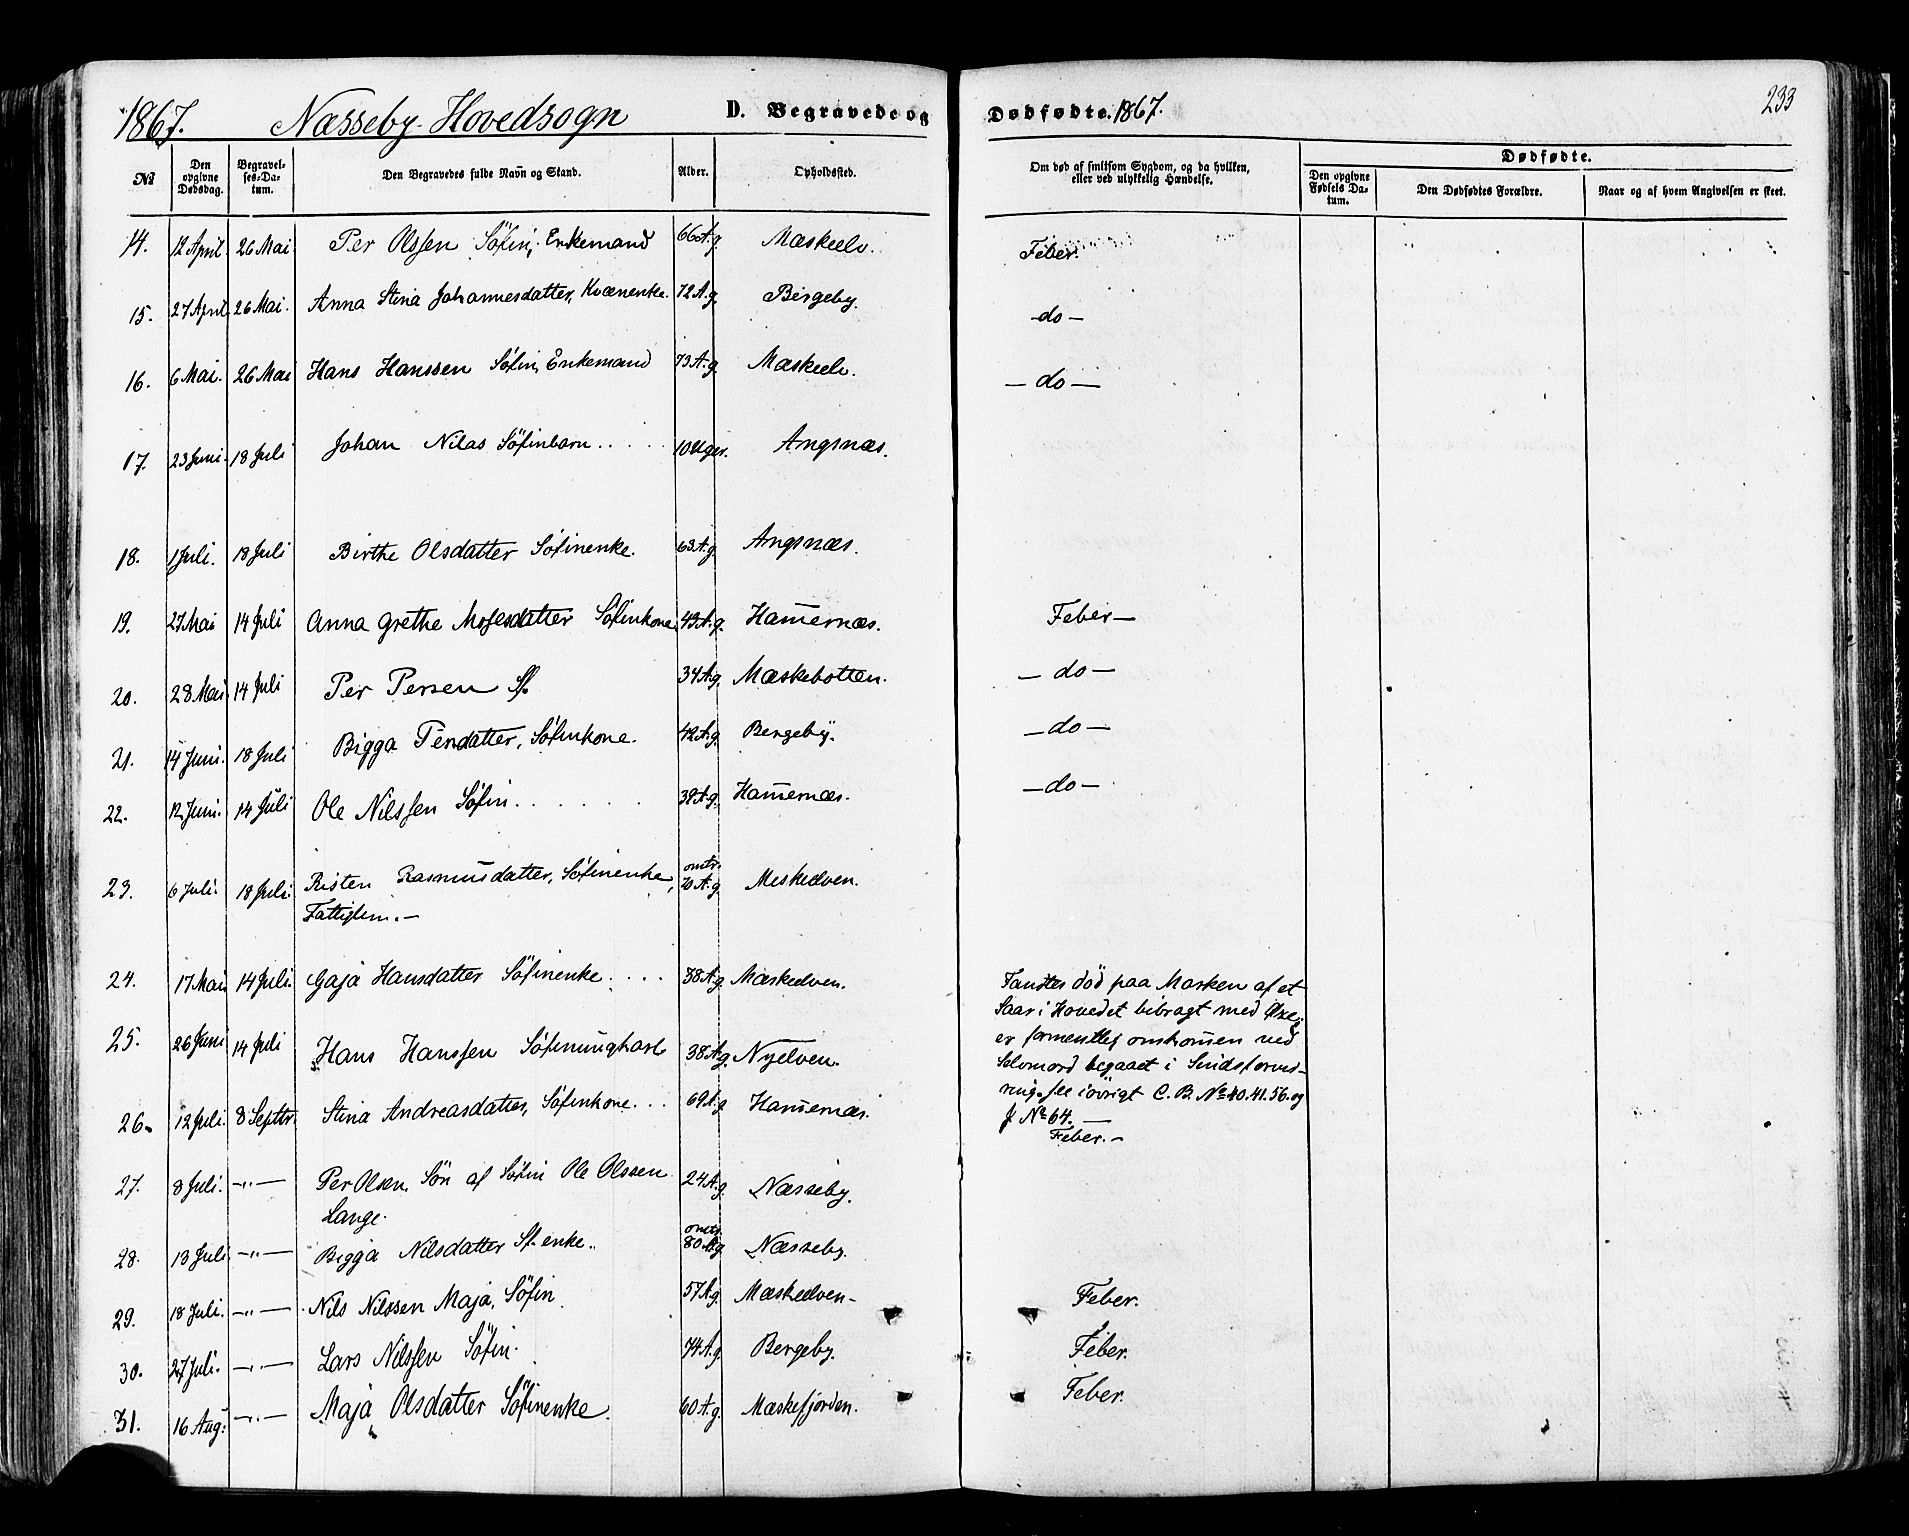 1867. Næsseby Hovedsogn D. Begravede og Dødfødte. 1867. 233
№ Den opgivne Dødsdag. Begravelses-Datum. Den Begravedes fulde Navn og Stand. Alder. Opholdsted. Om død af smitsom Sygdom, og da hvilken, eller ved ulykkelig Hændelse. Dødfødte.
Den opgivne Fødsels Datum. Den Dødfødtes Forældre. Naar og af hvem Angivelsen er skeet.
14. 12 April. 26 Mai Per Olssen Söfin, Enkemand 66 A.g. Mæskeelv. Feber.
15. 27 April 26 Mai. Anna Stina Johannesdatter, Kvænenke. 72 A.g. Bergeby. -do-
16. 6 Mai. 26 Mai Hans Hanssen Söfin, Enkemand 73 A.g. Mæskeelv. - do -
17. 23 Juni. 18 Juli Johan Nilas Söfinbarn . . . . 10 Uger. Angsnæs.
18. 1 Juli. 18 Juli Birthe Olsdatter Söfinenke. 63 A.g. Angsnæs.
19. 27 Mai 14 Juli Anna Grethe Mosesdatter Söfinkone 43 A.g. Ham̅ernæs. Feber-
20. 28 Mai 14 Juli Per Persen Sf. 34 A.g. Mæskebotten. - do -
21. 14 Juni. 18 Juli Bigga Persdatter, Söfinkone. 42 A.g. Bergeby. - do -
22. 12 Juni. 14 Juli Ole Nilssen Söfin. . . . . . 39 A.g. Ham̅ernæs. - do -
23. 6 Juli. 18 Juli. Risten Rasmusdatter, Söfinenke, omtr. 70 A.g. Meskelven.
Fattiglem. -
24. 17 Mai 14 Juli. Gaja Hansdatter Söfinenke. . . . 88 A.g. Mæskeelven. Fandtes död paa Marken af et
Saar i Hovedet bibragt med Öxe;
25. 26 Juni 14 Juli Hans Hanssen Söfinungkarl 38 A.g. Nyelven. er formentlig omkom̅en ved
Selvmord begaaet i Sindsforvir-
ring. See iövrigt C. B. № 40. 41. 56. og
26. 12 Juli. 8 Septbr. Stina Andreasdatter, Söfinkone. . . 69 A.g Ham̅ernæs. J № 64. -
Feber. -
27. 8 Juli. -"- Per Olsen, Sön af Söfin Ole Olssen 24 A.g Næsseby.
Lange.
28. 13 Juli. -"- Bigga Nilsdatter Sf. enke. omtr. 80 A.g Næsseby.
29. 18 Juli. -"- Nils Nilssen Maja, Söfin 57 A.g Mæskeelven- Feber.
30. 27 Juli. -"- Lars Nilssen Söfin. 74 A.g. Bergeby. Feber.
31. 16 Aug: -"- Maja Olsdatter Söfinenke. 60 A.g. Mæskefjorden. Feber.